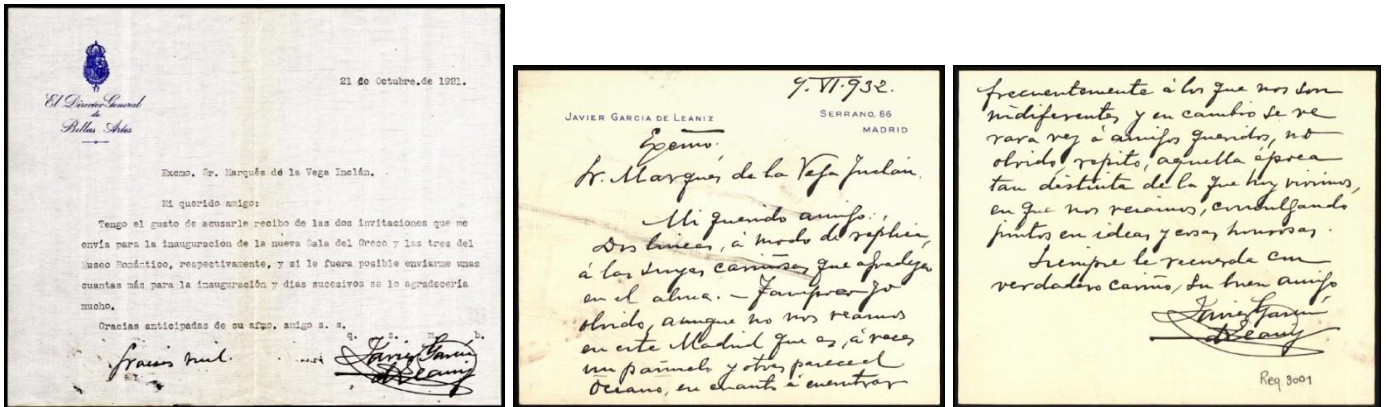 21 de Octubre.de 1921.
El Director General
de
Bellas Artes
Excmo. Sr. Marqués de la Vega Inclán.
Mi querido amigo:
Tengo el gusto de acusarle recibo de las dos invitaciones que me
envia para la inauguracion de la nueva Sala del Greco y las tres del
Museo Romántico, respectivamente, y si le fuera posible enviarme unas
cuantas más para la inauguración y dias sucesivos se lo agradecería
mucho.
Gracias anticipadas de su afmo. amigo s. s.
q. e. m. b.
Gracias mil.
Javier García
de Leaniz
9. VI. 932.
JAVIER GARCIA DE LEANIZ
SERRANO, 86
MADRID
Excmo.
Sr. Marqués de la Vega Inclán.
Mi querido amigo:
Dos lineas, á modo de replica,
á las suyas cariñosas que agradezco
en el alma. — Tampoco yo
olvido, aunque no nos veamos
en este Madrid que es, á veces
un pañuelo y otras parece el
Océano, en cuanto á encontrar
frecuentemente á los que nos son
indiferentes y en cambio se ve
rara vez á amigos queridos, no
olvido repito, aquella época
tan distinta de la que hoy vivimos,
en que nos veíamos, comulgando
juntos en ideas y cosas honrosas.
Siempre le recuerda con
verdadero cariño, su buen amigo
Javier García
de Leaniz
Reg. 3001